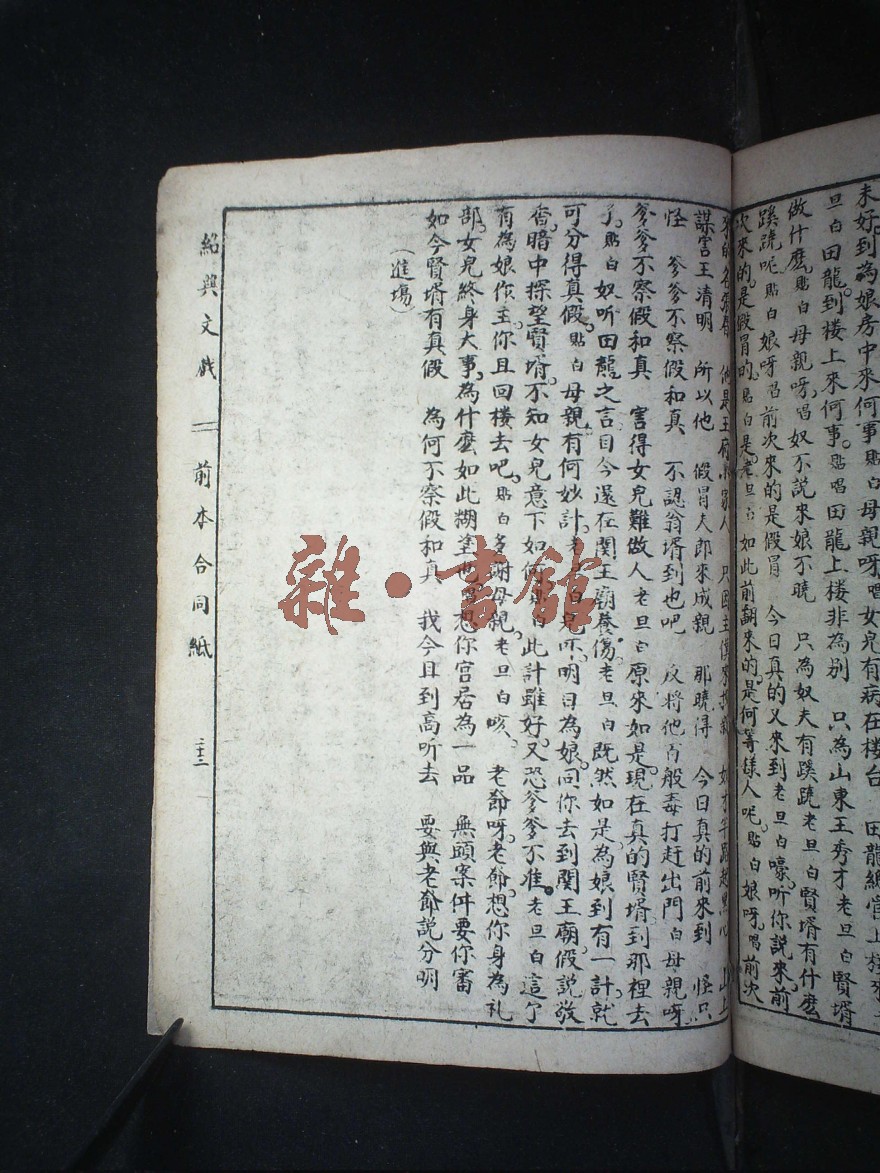 未好。到為娘房中來何事。貼白母親呀。唱女兒有病在楼台 田龍
旦白田龍到楼上來何事。貼唱田龍上楼非為別 只為山東王秀才老旦白賢壻
做什麽。貼白母親呀。唱奴不說來娘不曉 只為奴夫有蹊蹺老旦白賢壻有什麽
蹊蹺呢。貼白娘呀。唱前次來的是假冒 今日真的又來到老旦白嚎。听你說來。前
次來的。是假冒的。貼白是。老旦白如此前翻來的。是何等樣人呢。貼白娘呀。唱前次
來的名 他是王府 家人 只因主僕來 山上
謀害王清明 所以他 假冒夫郎來成親 那曉得 今日真的前來到 怪只
怪 爹爹不察假和真 不認翁壻到也吧 反將他百般毒打赶出門白母親呀
爹爹不察假和真 害得女兒難做人老旦白原來如是。現在真的賢壻到那裡去
了。貼白奴听田龍之言目今還在関王廟養傷。老旦白既然如是為娘到有一計就
可分得真假。貼白母親有何妙計。老旦白兒所。明日為娘。同你去到関王廟。假說發
香。暗中探望賢壻。不知女兒意下如何。貼白此計雖好。又恐爹爹不准。老旦白這個
有為娘作主。你且回楼去吧。貼白多謝母親。老旦白咳 老爺呀。老爺。想你身為礼
部。女兒終身大事。為什麽如此糊塗也。唱想你官居為一品 無頭案件要你審
如今賢壻有真假 為何不察假和真 我今且到高听去 要與老爺說分明
（進場）
紹興文戲 前本合同紙 二十二
雜·書館